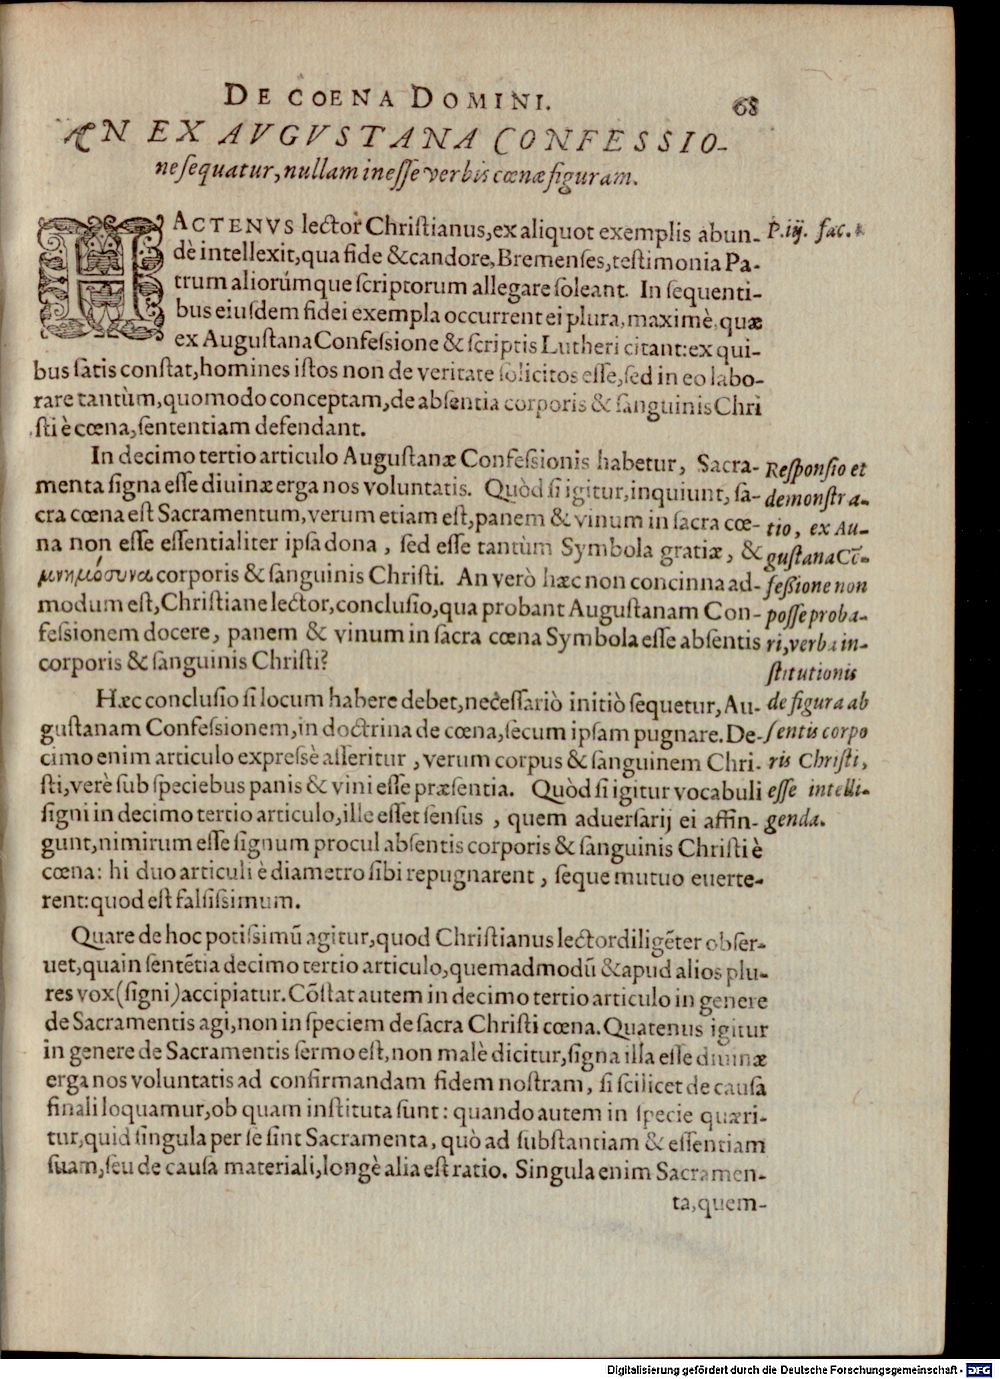 DE COENA DOMINI. 68
AN EX AVGVSTANA CONFESSIO-
ne sequatur, nullam inesse verbis cœnæ figuram.
HACTENVS lector Christianus, ex aliquot exemplis abun-
dè intellexit, qua fide & candore, Bremenses, testimonia Pa-
trum aliorúmque scriptorum allegare soleant. In sequenti-
bus eiusdem fidei exempla occurrent ei plura, maximè, quæ
ex Augustana Confessione & scriptis Lutheri citant: ex qui-
bus satis constat, homines istos non de veritate solicitos esse, sed in eo labo-
rare tantùm, quomodo conceptam, de absentia corporis & sanguinis Chri
sti è cœna, sententiam defendant.
P. iij. fac.
In decimo tertio articulo Augustanæ Confessionis habetur, Sacra-
menta signa esse diuinæ erga nos voluntatis. Quòd si igitur, inquiunt, sa-
cra cœna est Sacramentum, verum etiam est, panem & vinum in sacra cœ-
na non esse essentialiter ipsa dona, sed esse tantùm Symbola gratiæ, &
μνημόσυνα corporis & sanguinis Christi. An verò hæc non concinna ad-
modum est, Christiane lector, conclusio, qua probant Augustanam Con-
fessionem docere, panem & vinum in sacra cœna Symbola esse absentis
corporis & sanguinis Christi?
Responsio et
demonstra-
tio, ex Au-
gustana Cō-
fessione non
posse proba-
ri, verba in-
stitutionis
de figura ab
sentis corpo
ris Christi,
esse intelli-
genda.
Hæc conclusio si locum habere debet, necessariò initiò sequetur, Au-
gustanam Confessionem, in doctrina de cœna, secum ipsam pugnare. De-
cimo enim articulo expressè asseritur, verum corpus & sanguinem Chri-
sti, verè sub speciebus panis & vini esse præsentia. Quòd si igitur vocabuli
signi in decimo tertio articulo, ille esset sensus, quem aduersarij ei affin-
gunt, nimirum esse signum procul absentis corporis & sanguinis Christi è
cœna: hi duo articuli è diametro sibi repugnarent, seque mutuo euerte-
rent: quod est falsissimum.
Quare de hoc potissimū agitur, quod Christianus lector diligēter obser-
uet, qua in sentētia decimo tertio articulo, quemadmodū & apud alios plu-
res vox (signi) accipiatur. Cōstat autem in decimo tertio articulo in genere
de Sacramentis agi, non in speciem de sacra Christi cœna. Quatenus igitur
in genere de Sacramentis sermo est, non malè dicitur, signa illa esse diuinæ
erga nos voluntatis ad confirmandam fidem nostram, si scilicet de causa
finali loquamur, ob quam instituta sunt: quando autem in specie quæri-
tur, quid singula per se sint Sacramenta, quò ad substantiam & essentiam
suam, seu de causa materiali, longè alia est ratio. Singula enim Sacramen-
ta, quem-
Digitalisierung gefördert durch die Deutsche Forschungsgemeinschaft - DFG